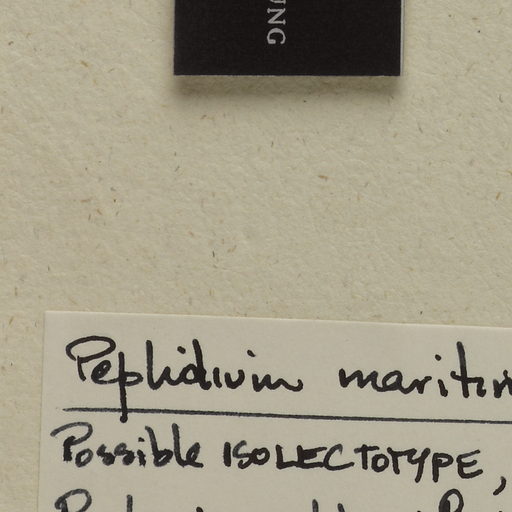 UNG
Peplidium maritim
Possible ISOLECTOTYPE,